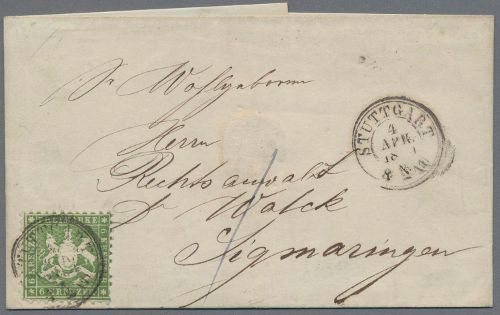 Sr Wohlgeboren
Herrn
Rechtsanwalt
Dr Walck
Sigmaringen
STUTTGART
4
APR.
18
FREIMARKE
6 KREUZER